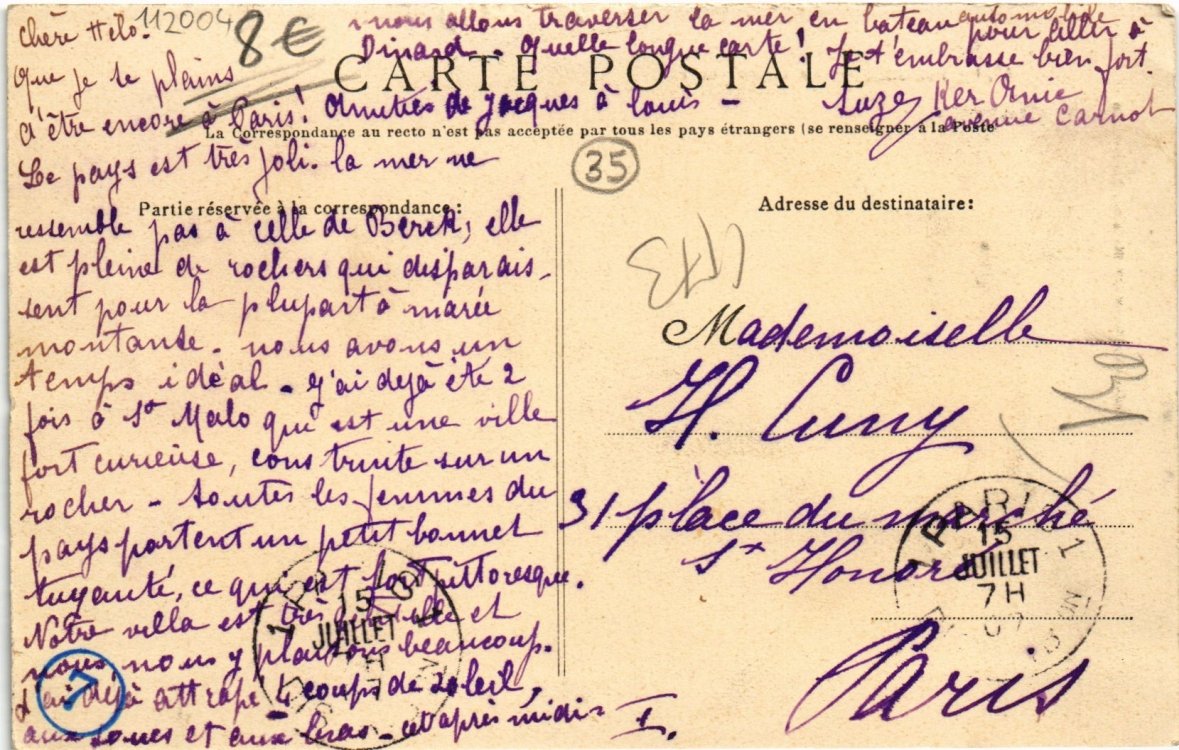 chère Hélo. 112004
Que je te plains
d'être encore à Paris!
Le pays est très joli. la mer ne
ressemble pas à celle de Berck, elle
est pleine de rochers qui disparais-
sent pour la plupart à marée
montante. nous avons un
temps idéal - j'ai dejà été 2
fois à St Malo qui est une ville
fort curieuse, construite sur un
rocher - toutes les femmes du
pays portent un petit bonnet
tuyauté, ce qui est fort pittoresque.
Notre villa est très gentille et
nous nous y plaisons beaucoup.
J'ai dejà attrapé 4 coups de soleil,
aux joues et aux bras - cet après midi
I.
nous allons traverser la mer en bateau automobile pour aller à
Dinard - Quelle longue carte! Je t'embrasse bien fort.
Amitiés de Jacques à Louis - Suze
Ker
avenue Carnot
8€
CARTE POSTALE
La Correspondance au recto n'est pas acceptée par tous les pays étrangers (se renseigner à la Poste
35
Partie réservée à la correspondance:
Adresse du destinataire:
Mademoiselle
H. Cuny
31 place du marché
St Honoré
Paris
PARIS 1
15
JUILLET
7H
15
JUILLET
7H